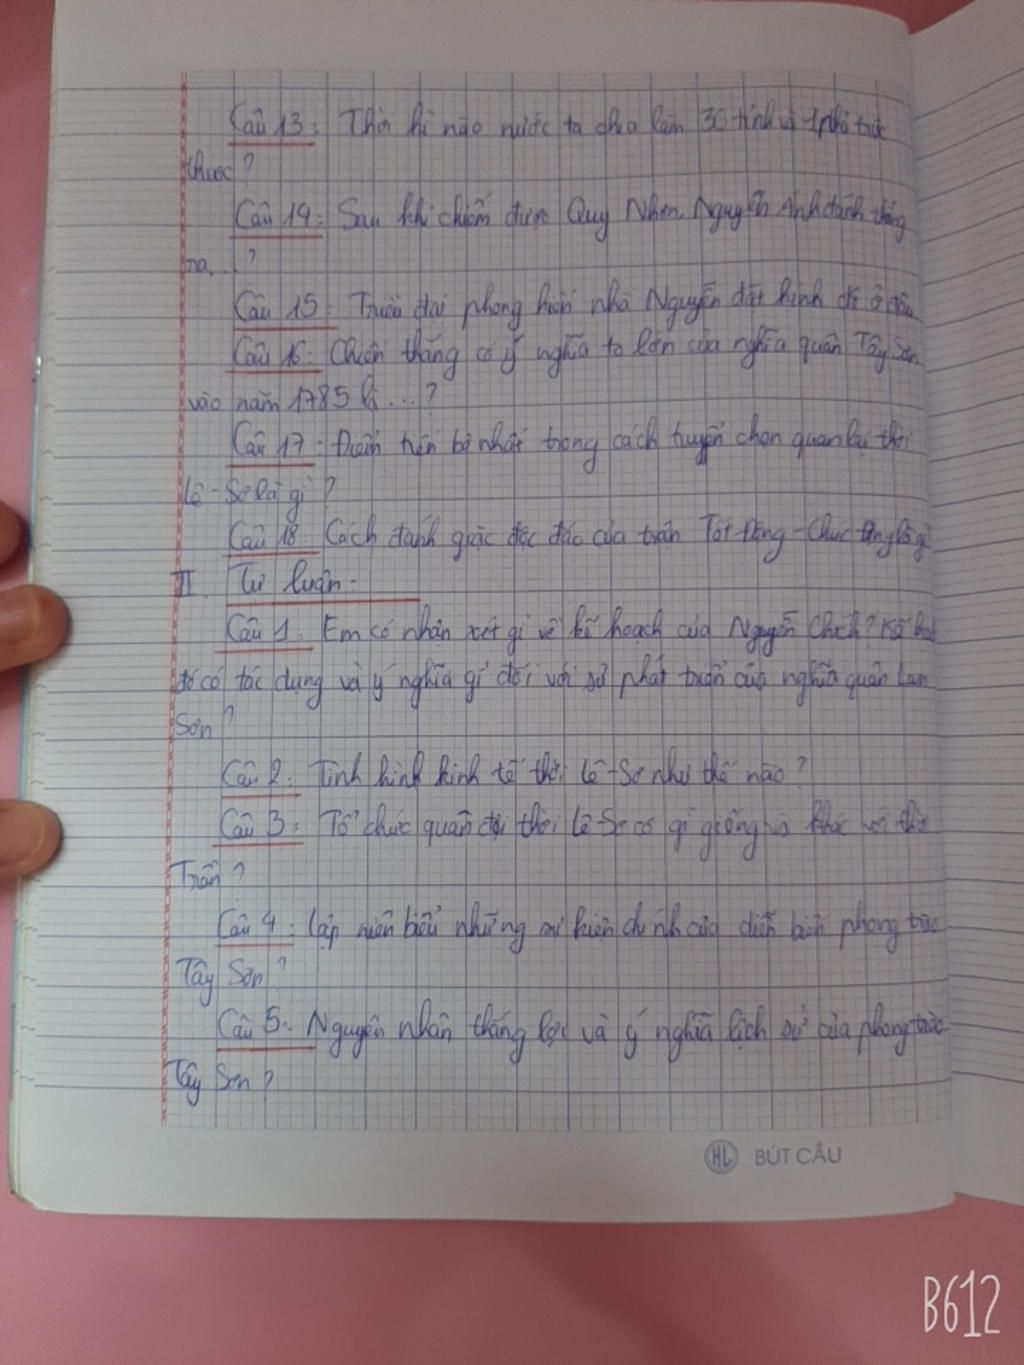 Câu 13: Thời kì nào nước ta chia làm 30 tỉnh và 1 phủ trực
thuộc?
Câu 14: Sau khi chiếm được Quy Nhơn, Nguyễn Ánh đánh thẳng
ra...?
Câu 15: Triều đại phong kiến nhà Nguyễn đặt kinh đô ở đâu
Câu 16: Chiến thắng có ý nghĩa to lớn của nghĩa quân Tây Sơn
vào năm 1785 là...?
Câu 17: Điểm tiến bộ nhất trong cách tuyển chọn quan lại thời
Lê-Sơ là gì?
Câu 18: Cách đánh giặc độc đáo của trận Tốt Động - Chúc Động là gì
II. Tự luận.
Câu 1: Em có nhận xét gì về kế hoạch của Nguyễn Chích? Kế hoạch
đó có tác dụng và ý nghĩa gì đối với sự phát triển của nghĩa quân Lam
Sơn?
Câu 2: Tình hình kinh tế thời Lê-Sơ như thế nào?
Câu 3: Tổ chức quân đội thời Lê-Sơ có gì giống và khác với thời
Trần?
Câu 4: Lập niên biểu những sự kiện chính của diễn biến phong trào
Tây Sơn?
Câu 5: Nguyên nhân thắng lợi và ý nghĩa lịch sử của phong trào
Tây Sơn?
HL BÚT CẦU
B612